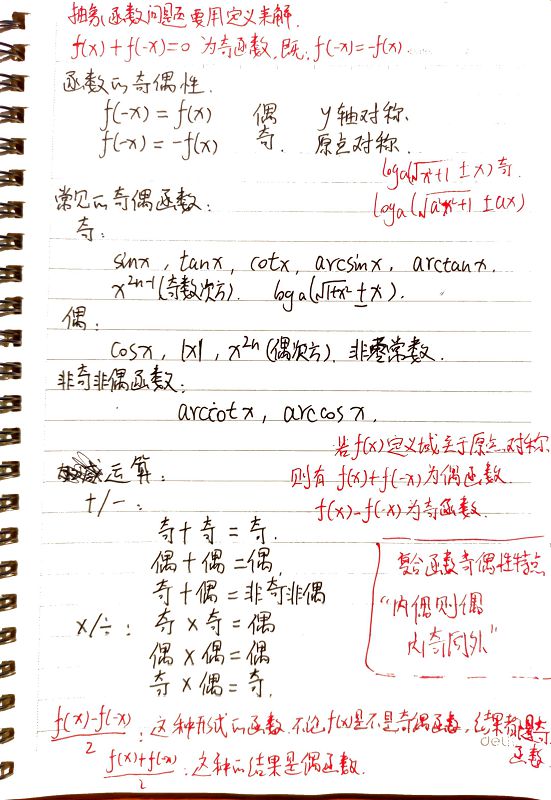 抽象函数问题要用定义来解.
f(x)+f(-x)=0 为奇函数,既, f(-x)=-f(x).
函数的奇偶性.
f(-x)=f(x) 偶 y轴对称.
f(-x)=-f(x) 奇. 原点对称.
loga(√x²+1 ±x)奇.
loga(√a²x²+1 ±ax)
常见的奇偶函数:
奇:
sinx, tanx, cotx, arcsinx, arctanx.
x²ⁿ⁻¹(奇数次方). loga(√1+x² ±x).
偶:
cosx, |x|, x²ⁿ(偶次方). 非零常数.
非奇非偶函数:
arccotx, arccosx.
若f(x)定义域关于原点对称
则有 f(x)+f(-x)为偶函数.
f(x)-f(-x)为奇函数.
运算:
+/-:
奇+奇=奇.
偶+偶=偶.
奇+偶=非奇非偶
×/÷: 奇×奇=偶
偶×偶=偶
奇×偶=奇.
复合函数奇偶性特点
“内偶则偶
内奇同外”
f(x)-f(-x)/2 : 这种形式的函数.不论f(x)是不是奇偶函数,结果都是奇函数.
f(x)+f(-x)/2 : 这种的结果是偶函数.
deli